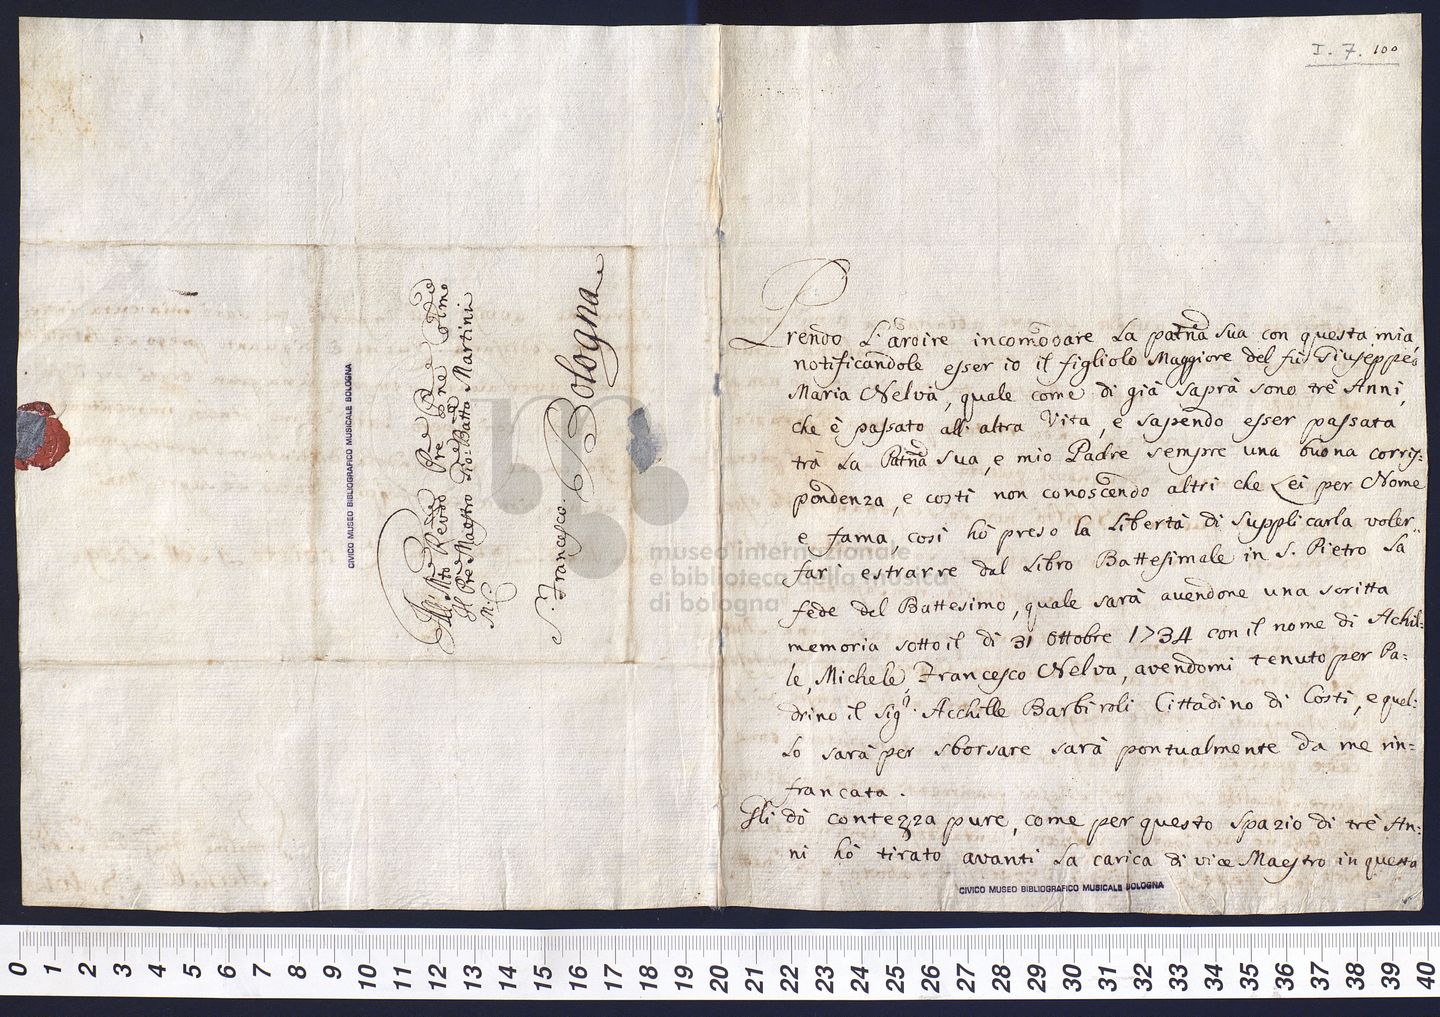 I. 7. 100
All Mto Revdo Pre Pre e
Il Pre Maestro Gio: Batta Martini
S. Francesco. Bologna
CIVICO MUSEO BIBLIOGRAFICO MUSICALE BOLOGNA
Prendo L'ardire incomodare La patnà sua con questa mia,
notificandole esser io il figliolo Maggiore del fù Giuseppe
Maria Nelva, quale come di già saprà sono trè Anni,
che è passato all'altra Vita, e sapendo esser passata
trà La Patnà sua, e mio Padre sempre una buona corris:
pondenza, e costì non conoscendo altri che Lei per Nome
e fama, così hò preso la Libertà di supplicarla voler:
fari estrarre dal Libro Battesimale in S. Pietro La
fede del Battesimo, quale sarà avendone una scritta
memoria sotto il di 31 Ottobre 1734 con il nome di Achil:
le, Michele, Francesco Nelva, avendomi tenuto per Pa:
drino il Sigr. Acchille Barbiroli Cittadino di Costì, e quel:
Lo sarà per sborsare sarà pontualmente da me rin:
francata.
Gli dò contezza pure, come per questo spazio di trè An:
ni hò tirato avanti La carica di vice Maestro in questa
CIVICO MUSEO BIBLIOGRAFICO MUSICALE BOLOGNA
museo internazionale
e biblioteca della musica
di bologna
0 1 2 3 4 5 6 7 8 9 10 11 12 13 14 15 16 17 18 19 20 21 22 23 24 25 26 27 28 29 30 31 32 33 34 35 36 37 38 39 40